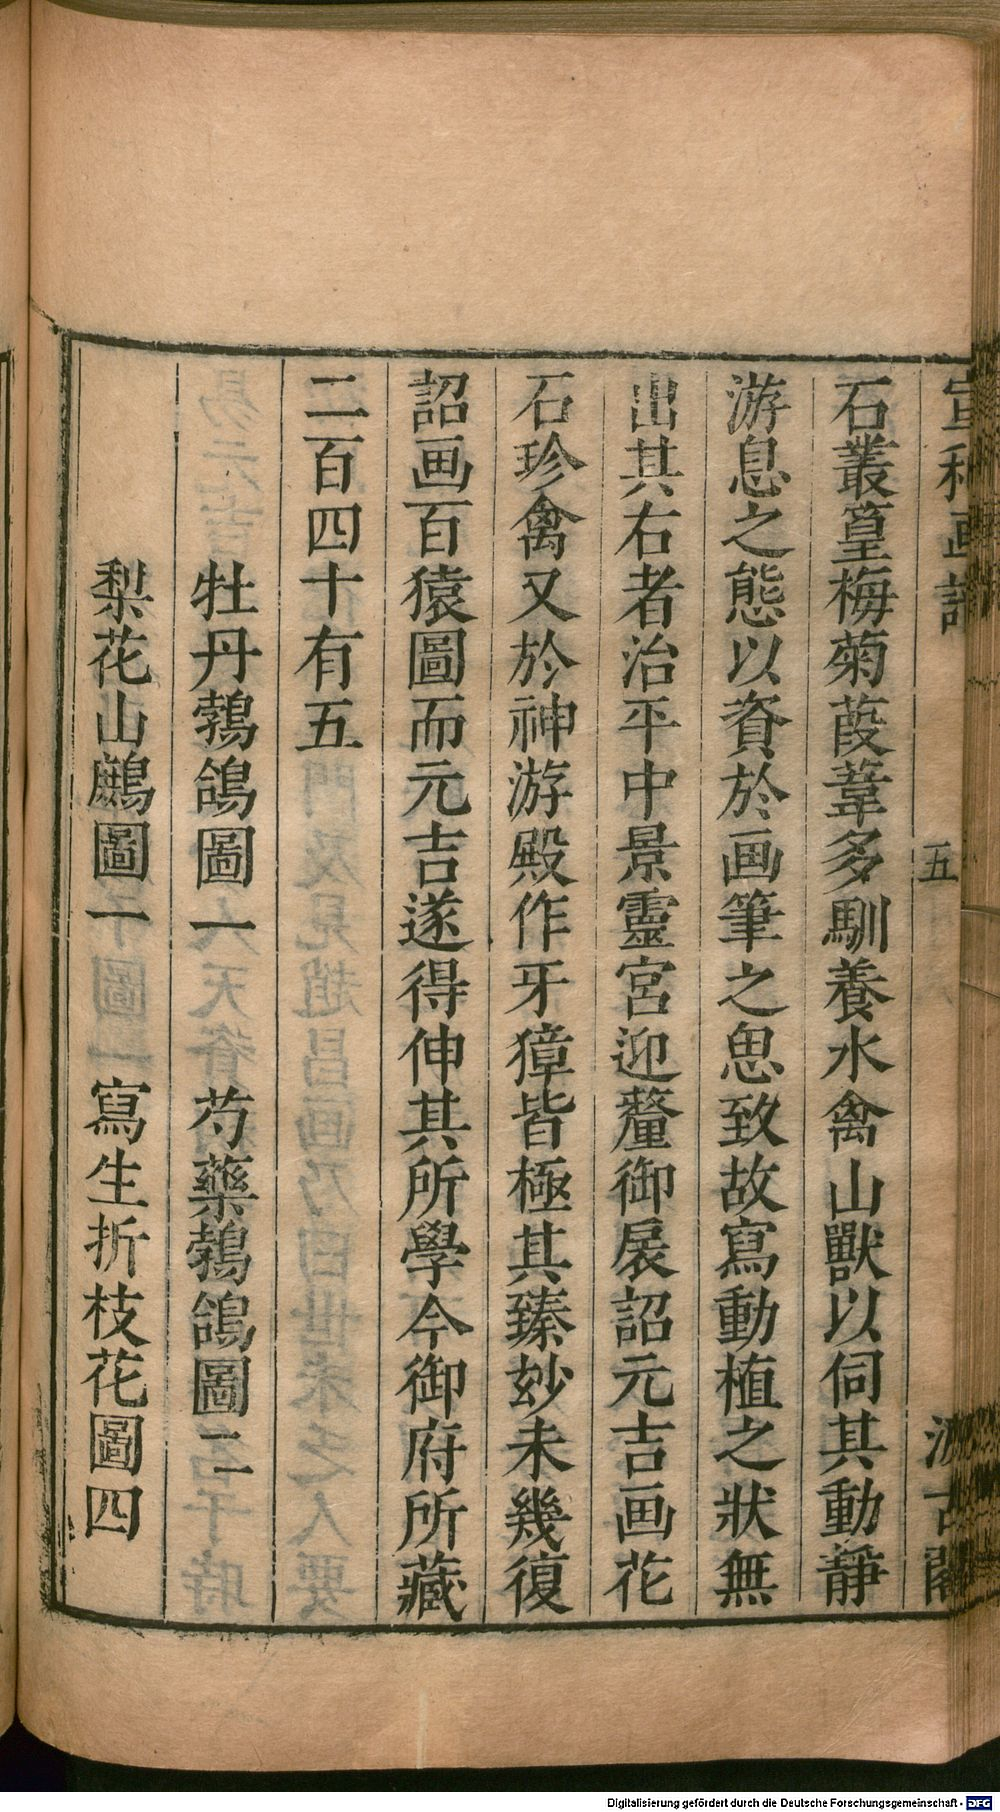 宣和画譜 五 汲古閣
石叢篁梅菊葭葦多馴養水禽山獸以伺其動靜
游息之態以資於画筆之思致故寫動植之狀無
出其右者治平中景靈宮迎釐御扆詔元吉画花
石珍禽又於神游殿作牙獐皆極其臻妙未幾復
詔画百猿圖而元吉遂得伸其所學今御府所藏
二百四十有五
牡丹鵓鴿圖一 芍藥鵓鴿圖二
梨花山鷓圖一 寫生折枝花圖四
Digitalisierung gefördert durch die Deutsche Forschungsgemeinschaft - DFG